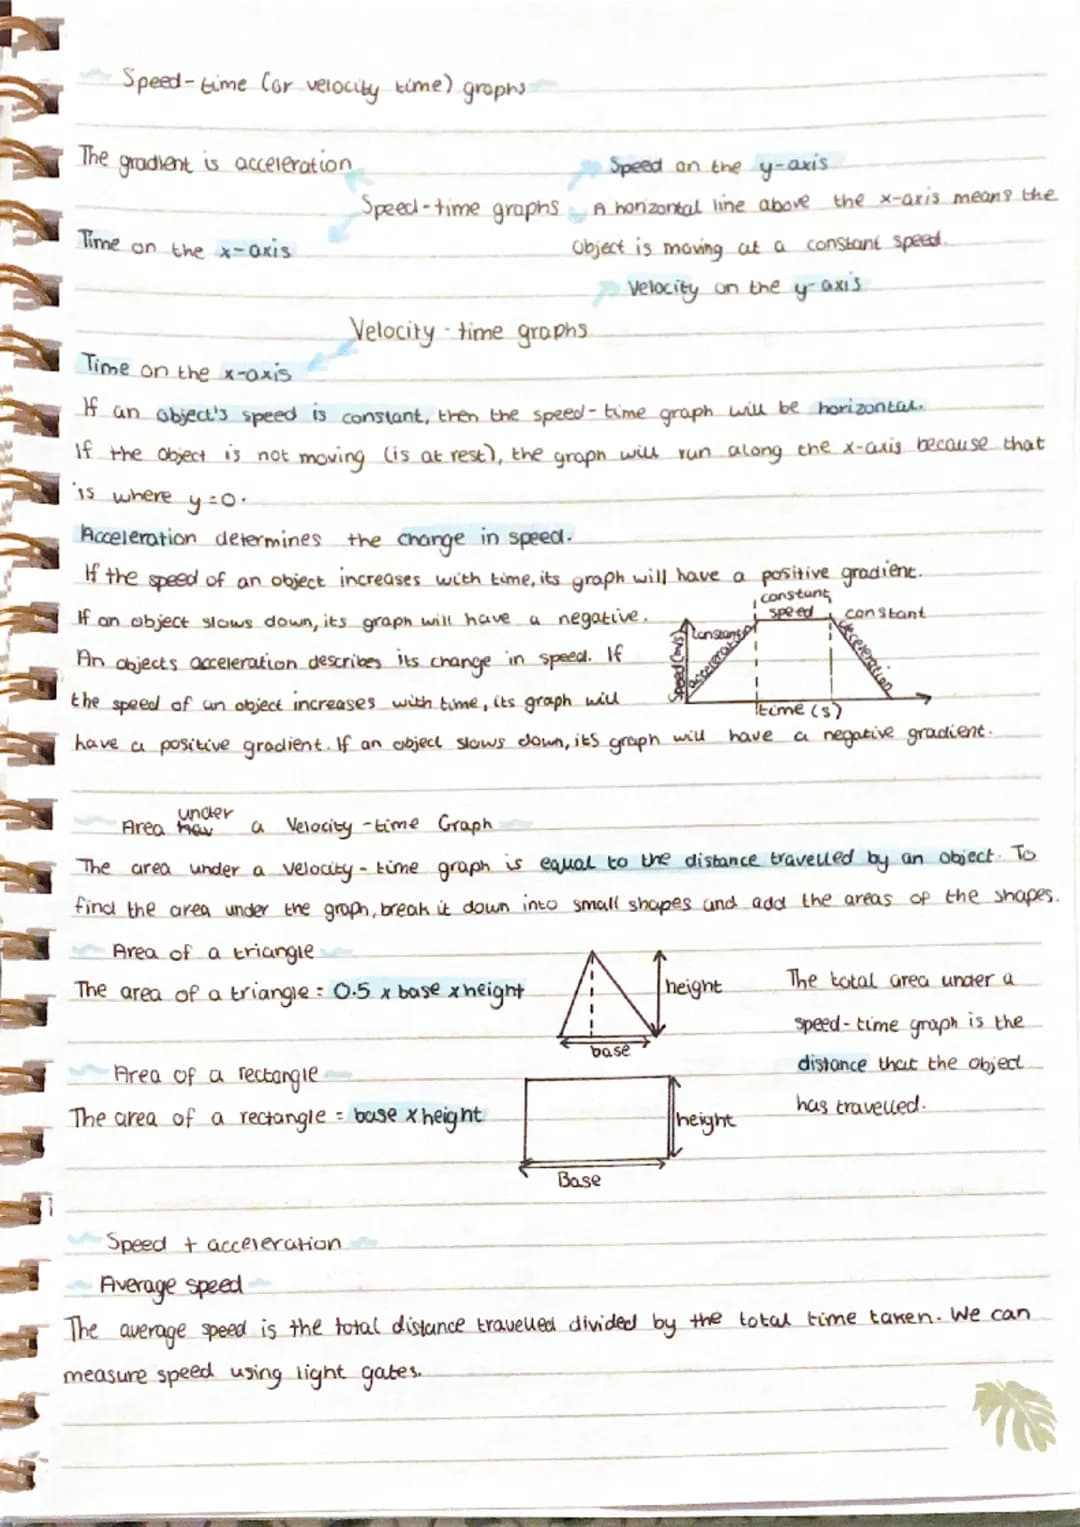 Speed-time (or velocity time) graphs
The gradient is acceleration
Speed on the y-axis
Speed-time graphs
A horizontal line above the x-axis means the
Time on the x-axis
object is moving at a constant speed.
Velocity on the y-axis
Velocity-time graphs
Time on the x-axis
If an object's speed is constant, then the speed-time graph will be horizontal.
If the object is not moving (is at rest), the graph will run along the x-axis because that
is where y=0.
Acceleration determines the change in speed.
If the speed of an object increases with time, its graph will have a positive gradient.
If an object slows down, its graph will have a negative.
An objects acceleration describes its change in speed. If
the speed of an object increases with time, its graph will
have a positive gradient. If an object slows down, its graph will have a negative gradient.
constant
speed
constant
deceleration
constant
acceleration
speed (m/s)
time (s)
Area under a Velocity-time Graph
The area under a velocity-time graph is equal to the distance travelled by an object. To
find the area under the graph, break it down into small shapes and add the areas of the shapes.
Area of a triangle
The area of a triangle = 0.5 x base x height
height
base
The total area under a
speed-time graph is the
distance that the object
has travelled.
Area of a rectangle
The area of a rectangle = base x height
height
Base
Speed + acceleration
Average speed
The average speed is the total distance travelled divided by the total time taken. We can
measure speed using light gates.